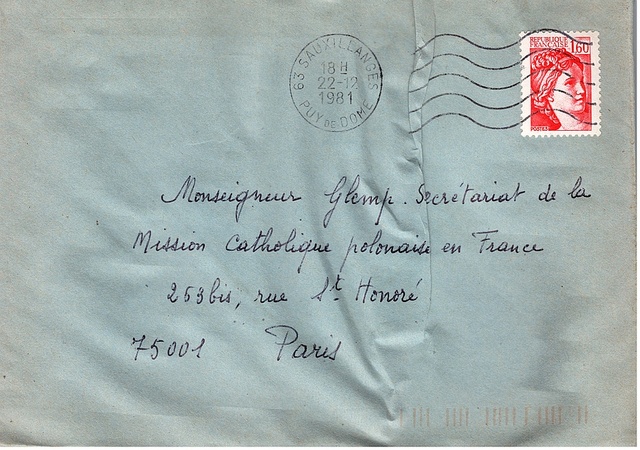 63 SAUXILLANGES
18H
22-12
1981
PUY DE DOME
REPUBLIQUE
FRANCAISE 1,60
POSTES
Monseigneur Glemp. Secrétariat de la
Mission Catholique polonaise en France
263bis, rue St Honoré
75001 Paris